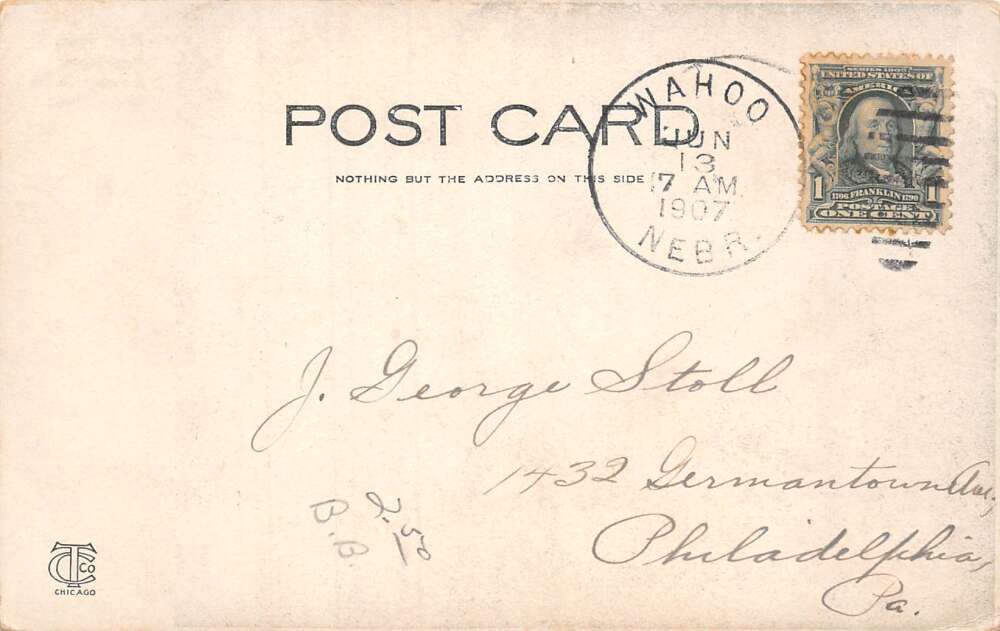 POST CARD
NOTHING BUT THE ADDRESS ON THIS SIDE
WAHOO
JUN
13
7 AM
1907
NEBR.
SERIES 1902
UNITED STATES OF
AMERICA
1 1706 FRANKLIN 1790 1
POSTAGE
ONE CENT
J. George Stoll
1432 Germantown Ave,
Philadelphia,
Pa.
2.50
B.B.
CTCo
CHICAGO